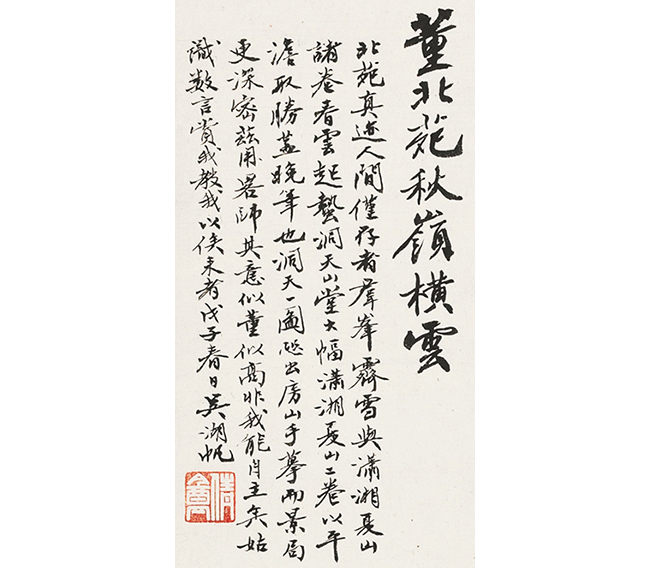 董北苑秋嶺横雲
北苑真迹人間僅存者羣峯霽雪與瀟湘夏山
諸卷春雲起蟄洞天山堂大幅瀟湘夏山二卷以平
澹取勝蓋晚筆也洞天一圖恐出房山手摹而景局
更深密兹用畧師其意似董似高非我能自主矣姑
識数言賞我教我以俟来者戊子春日吳湖帆
倩盦